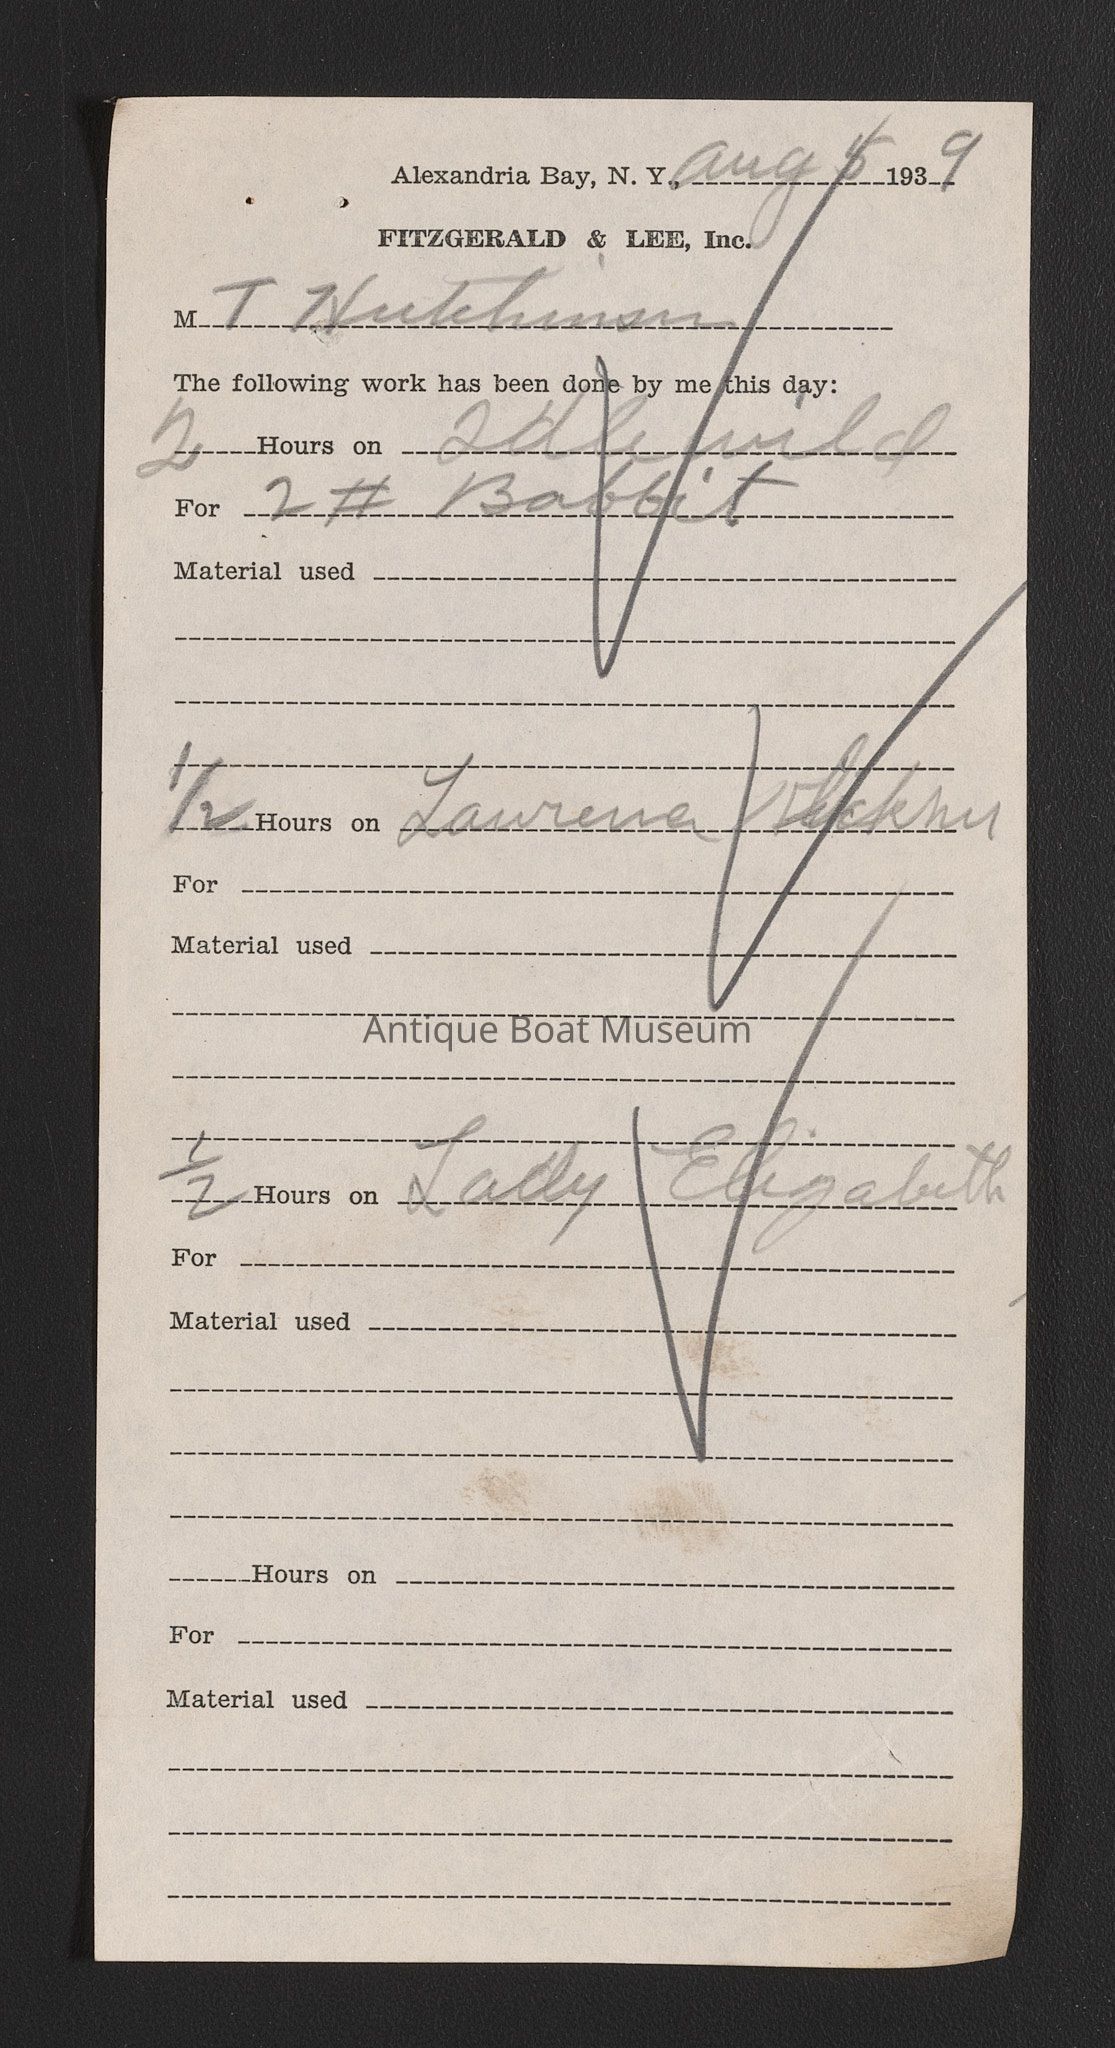 Alexandria Bay, N. Y., Aug 5 1939
FITZGERALD & LEE, Inc.
M T Hutchinson
The following work has been done by me this day:
2 Hours on Idlewild
For 2 # Babbit
Material used
1/2 Hours on Lawrence
For
Material used
Antique Boat Museum
1/2 Hours on Lady Elizabeth
For
Material used
Hours on
For
Material used